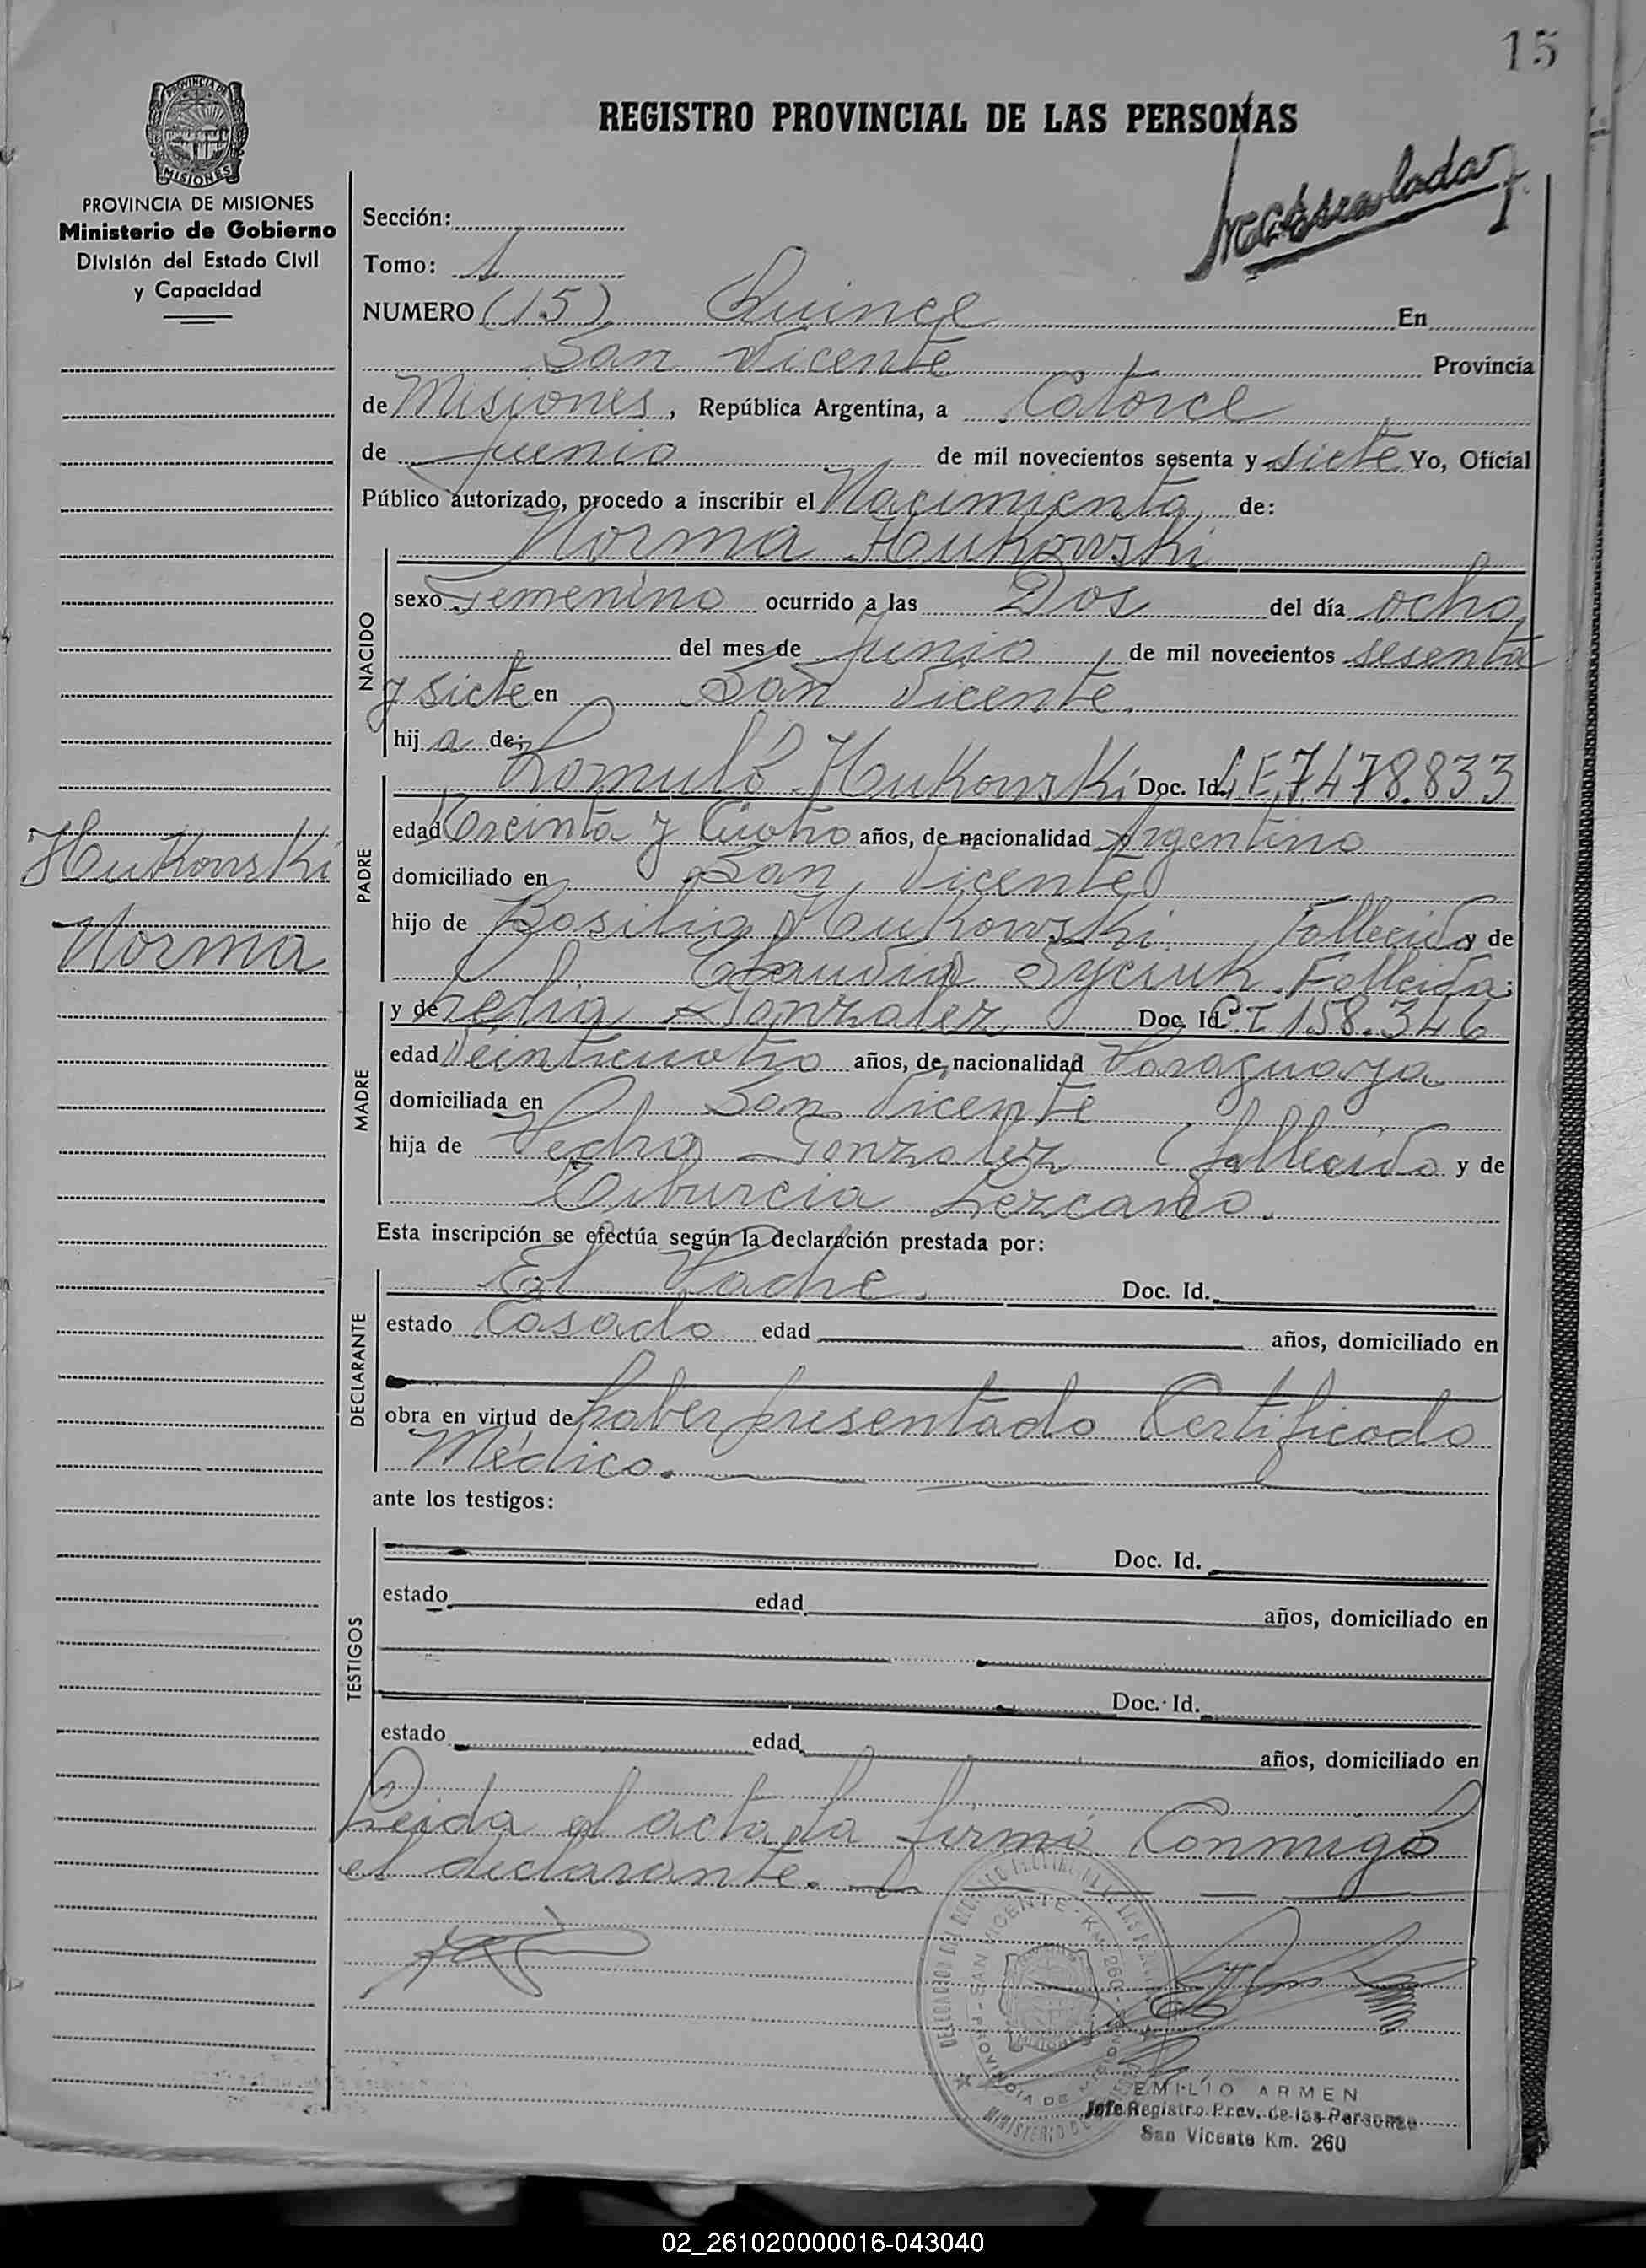 15
PROVINCIA DE
MISIONES
REGISTRO PROVINCIAL DE LAS PERSONAS
PROVINCIA DE MISIONES
Ministerio de Gobierno
División del Estado Civil
y Capacidad
Sección:
Tomo: 1
NUMERO (15) Quince En
San Vicente Provincia
de Misiones, República Argentina, a Catorce
de junio de mil novecientos sesenta y siete Yo, Oficial
Público autorizado, procedo a inscribir el Nacimiento de:
Norma Hukowski
NACIDO
sexo Femenino ocurrido a las Dos del día ocho
del mes de junio de mil novecientos sesenta
y siete en San Vicente
hija de:
Romulo Hukowski Doc. Id. L.E. 7478.833
PADRE
edad Treinta y Cuatro años, de nacionalidad Argentino
domiciliado en San Vicente
hijo de Basilio Hukowski Fallecido y de
Claudia Syciuk. Fallecida;
Hukowski
Norma
y de Gonzalez Doc. Id. C I 158.346
MADRE
edad Veinticuatro años, de nacionalidad Paraguaya
domiciliada en San Vicente
hija de Pedro Gonzalez (fallecido y de
Tiburcia Lezcano.
Esta inscripción se efectúa según la declaración prestada por:
El Padre. Doc. Id.
DECLARANTE
estado Casado edad años, domiciliado en
obra en virtud de haber presentado Certificado
Médico.
ante los testigos:
TESTIGOS
Doc. Id.
estado edad años, domiciliado en
Doc. Id.
estado edad años, domiciliado en
Leida el acta la firmó Conmigo
el declarante.
SAN VICENTE - KM. 260
PROVINCIA DE
MINISTERIO DE
EMILIO ARMEN
Jefe Registro Prov. de las Personas
San Vicente Km. 260
02_261020000016-043040